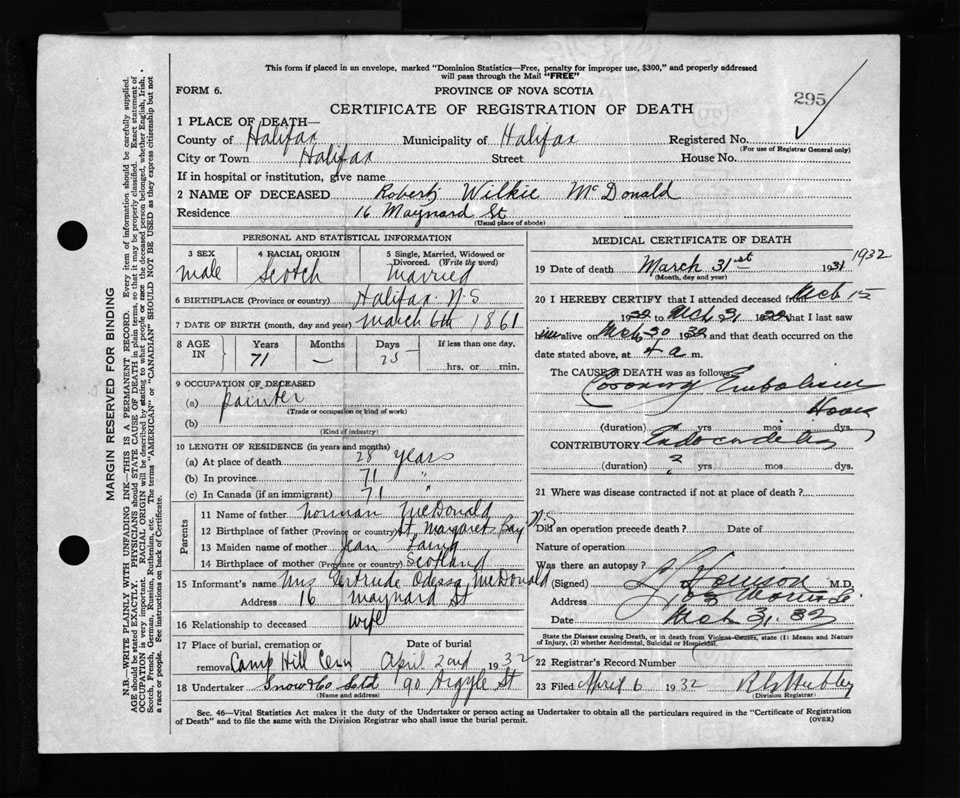 This form if placed in an envelope, marked "Dominion Statistics—Free, penalty for improper use, $300," and properly addressed
will pass through the Mail "FREE"
FORM 6. PROVINCE OF NOVA SCOTIA
CERTIFICATE OF REGISTRATION OF DEATH 295
1 PLACE OF DEATH—
County of Halifax Municipality of Halifax Registered No.
(For use of Registrar General only)
City or Town Halifax Street House No.
If in hospital or institution, give name
2 NAME OF DECEASED Robert Wilkie McDonald
Residence 16 Maynard St
(Usual place of abode)
PERSONAL AND STATISTICAL INFORMATION
3 SEX 4 RACIAL ORIGIN 5 Single, Married, Widowed or
Divorced. (Write the word)
male Scotch married
6 BIRTHPLACE (Province or country) Halifax N.S
7 DATE OF BIRTH (month, day and year) March 6th 1861
8 AGE IN Years Months Days If less than one day,
71 — 25 hrs. or min.
9 OCCUPATION OF DECEASED
(a) painter
(Trade or occupation or kind of work)
(b)
(Kind of industry)
10 LENGTH OF RESIDENCE (in years and months)
(a) At place of death 28 years
(b) In province 71 "
(c) In Canada (if an immigrant) 71 "
Parents
11 Name of father Norman McDonald
12 Birthplace of father (Province or country) St. Margaret Bay N S
13 Maiden name of mother Jean Laing
14 Birthplace of mother (Province or country) Scotland
15 Informant's name Mrs Gertrude Odessa McDonald
Address 16 Maynard St
16 Relationship to deceased wife
17 Place of burial, cremation or Date of burial
removal Camp Hill Cem April 2nd 1932
18 Undertaker Snow & Co Ltd 90 Argyle St
(Name and address)
MEDICAL CERTIFICATE OF DEATH
19 Date of death March 31st 1931 1932
(Month, day and year)
20 I HEREBY CERTIFY that I attended deceased from Mch 15
1932 to Mch 31 1932 that I last saw
him alive on Mch 30 1932 and that death occurred on the
date stated above, at 4 a m.
The CAUSE OF DEATH was as follows:
Coronary Embolism
Hours
(duration) yrs mos dys.
CONTRIBUTORY Endocarditis
(duration) ? yrs mos dys.
21 Where was disease contracted if not at place of death?
Did an operation precede death? Date of
Nature of operation
Was there an autopsy?
(Signed) M.D.
Address Morris St.
Date Mch 31. 32
State the Disease causing Death, or in death from Violent Causes, state (1) Means and Nature
of Injury, (2) whether Accidental, Suicidal or Homicidal.
22 Registrar's Record Number
23 Filed April 6 1932
(Division Registrar)
Sec. 46—Vital Statistics Act makes it the duty of the Undertaker or person acting as Undertaker to obtain all the particulars required in the "Certificate of Registration
of Death" and to file the same with the Division Registrar who shall issue the burial permit. (OVER)
MARGIN RESERVED FOR BINDING
N.B.—WRITE PLAINLY WITH UNFADING INK—THIS IS A PERMANENT RECORD. Every item of information should be carefully supplied.
AGE should be stated EXACTLY. PHYSICIANS should STATE CAUSE OF DEATH in plain terms, so that it may be properly classified. Exact statement of
OCCUPATION is very important. RACIAL ORIGIN will be described by stating to what people or race the deceased person belonged, whether English, Irish,
Scotch, French, German, Russian, Ruthenian, etc. The terms "AMERICAN" or "CANADIAN" SHOULD NOT BE USED as they express citizenship but not
a race or people. See instructions on back of Certificate.